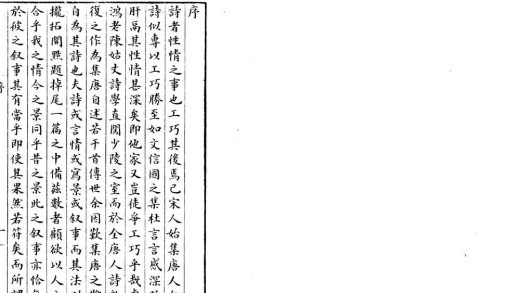 序
詩者性情之事也工巧其後焉已宋人始集唐人
詩似專以工巧勝至如文信國之集杜言言感深
肝鬲其性情甚深矣即他家又豈徒爭工巧乎哉
鴻老陳姑丈詩學直闖少陵之室而於全唐人詩
復之作為集唐自述若干首傳世余因歎集唐之
自為其詩也夫詩或言情或寫景或敘事而其法
攏拓開點題掉尾一篇之中備茲數者顧欲以人
合乎我之情今之景同乎昔之景此之敘事亦恰
於彼之敘事其有當乎即使其果然若符矣而所